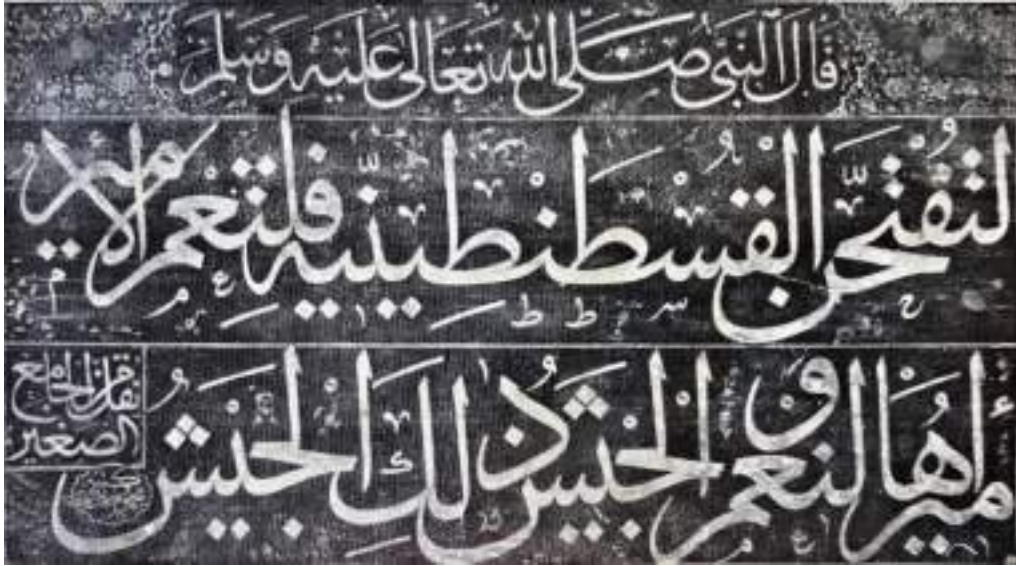 قال النبي صلى الله تعالى عليه وسلم
لتفتحن القسطنطينية فلنعم الامير
أميرها ولنعم الجيش ذلك الجيش
نقل من الجامع
الصغير